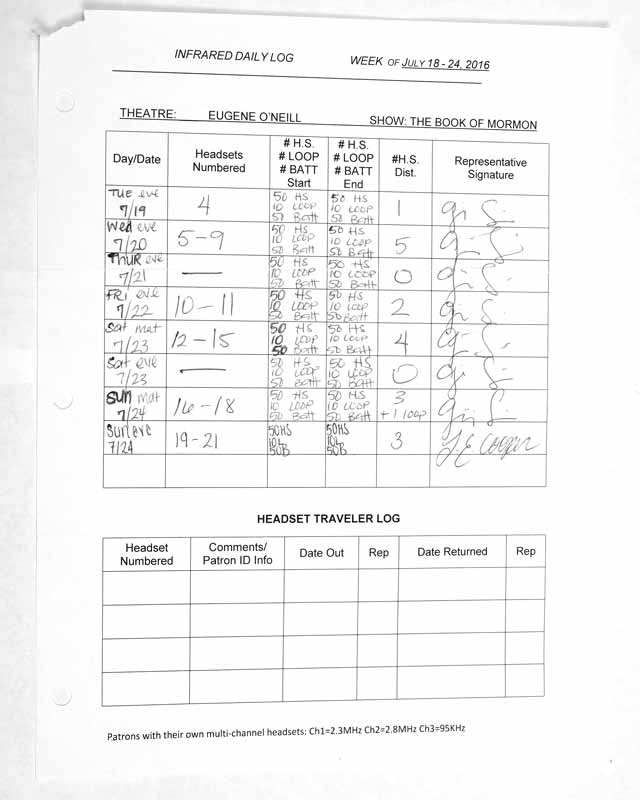 INFRARED DAILY LOG WEEK OF JULY 18 - 24, 2016
THEATRE: EUGENE O'NEILL SHOW: THE BOOK OF MORMON
Day/Date
Headsets
Numbered
# H.S.
# LOOP
# BATT
Start
# H.S.
# LOOP
# BATT
End
#H.S.
Dist.
Representative
Signature
TUE eve
7/19
4
50 HS
10 LOOP
50 Batt
50 HS
10 LOOP
50 Batt
1
Wed eve
7/20
5-9
50 HS
10 LOOP
50 Batt
50 HS
10 LOOP
50 Batt
5
THUR eve
7/21
—
50 HS
10 LOOP
50 Batt
50 HS
10 LOOP
50 Batt
0
FRI eve
7/22
10-11
50 HS
10 LOOP
50 Batt
50 HS
10 LOOP
50 Batt
2
Sat mat
7/23
12-15
50 HS
10 LOOP
50 Batt
50 HS
10 LOOP
50 Batt
4
Sat eve
7/23
—
50 HS
10 LOOP
50 Batt
50 HS
10 LOOP
50 Batt
0
SUN mat
7/24
16-18
50 HS
10 LOOP
50 Batt
50 HS
10 LOOP
50 Batt
3
+1 loop
Sun eve
7/24
19-21
50HS
10L
50B
50HS
10L
50B
3
J. E. Cooper
HEADSET TRAVELER LOG
Headset
Numbered
Comments/
Patron ID Info
Date Out
Rep
Date Returned
Rep
Patrons with their own multi-channel headsets: Ch1=2.3MHz Ch2=2.8MHz Ch3=95KHz